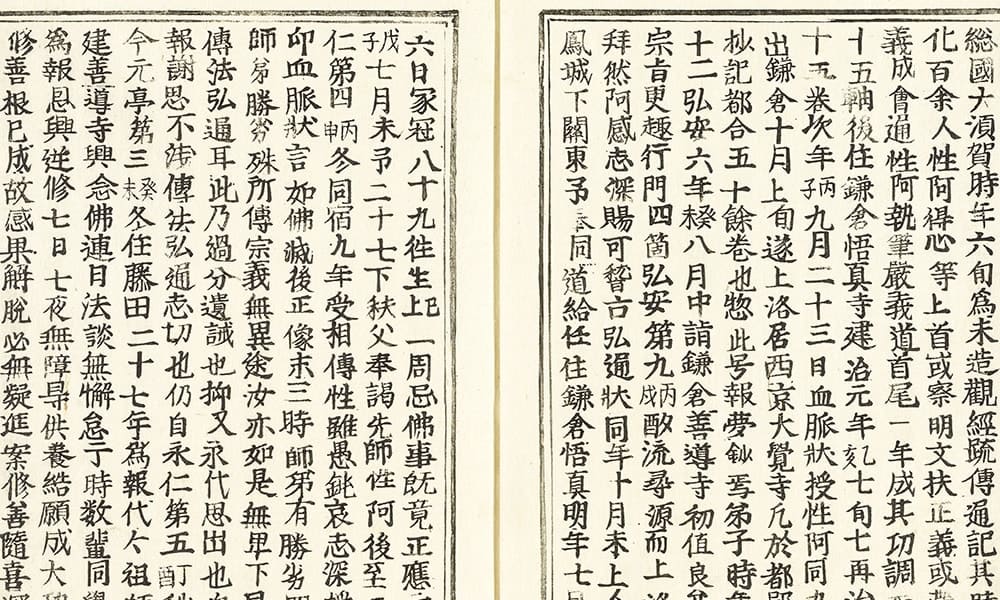 総國大湏賀時年六旬為未造觀經䟽傳通記其時
化百余人性阿得心等上首或察明文扶正義或
義成會通性阿執筆嚴義道首尾一年成其功調
十五軸後住鎌倉悟真寺建治元年乙亥七旬七再治
十五巻次年丙子九月二十三日血脈狀授性阿同
出鎌倉十月上旬遂上洛居西京大覺寺凡於都
抄記都合五十餘巻也惣此号報夢鈔写弟子時年
十二弘安六年癸未八月中詣鎌倉善導寺初值良
宗旨更趣行門四箇弘安第九丙戌酌流尋源而上洛
拜然阿感志深賜可瞽古弘通狀同年十月末上人
鳳城下關東予同道給任住鎌倉悟真明年七
六日冢冠八十九往生上巳一周忌佛事既竟正應
戊子七月末予二十七下秩父奉謁先師性阿後至
仁第四丙申冬同宿九年受相傳性雖愚鈍哀志深
印血脈狀言如佛滅後正像末三時師弟有勝劣
師弟勝劣殊所傳宗義無異途汝亦如是無早下
傳法弘通耳此乃過分遺誡也抑又永代思出也
報謝思不浅傳法弘通志切也仍自永仁第五丁酉
今元亭第三癸未冬住藤田二十七年為報代々祖師
建善導寺興念佛連日法談無懈怠于時数輩同
為報恩興逆修七日七夜無障㝵供養結願成大
修善根已成故感果解脫必無疑進案修善隨喜